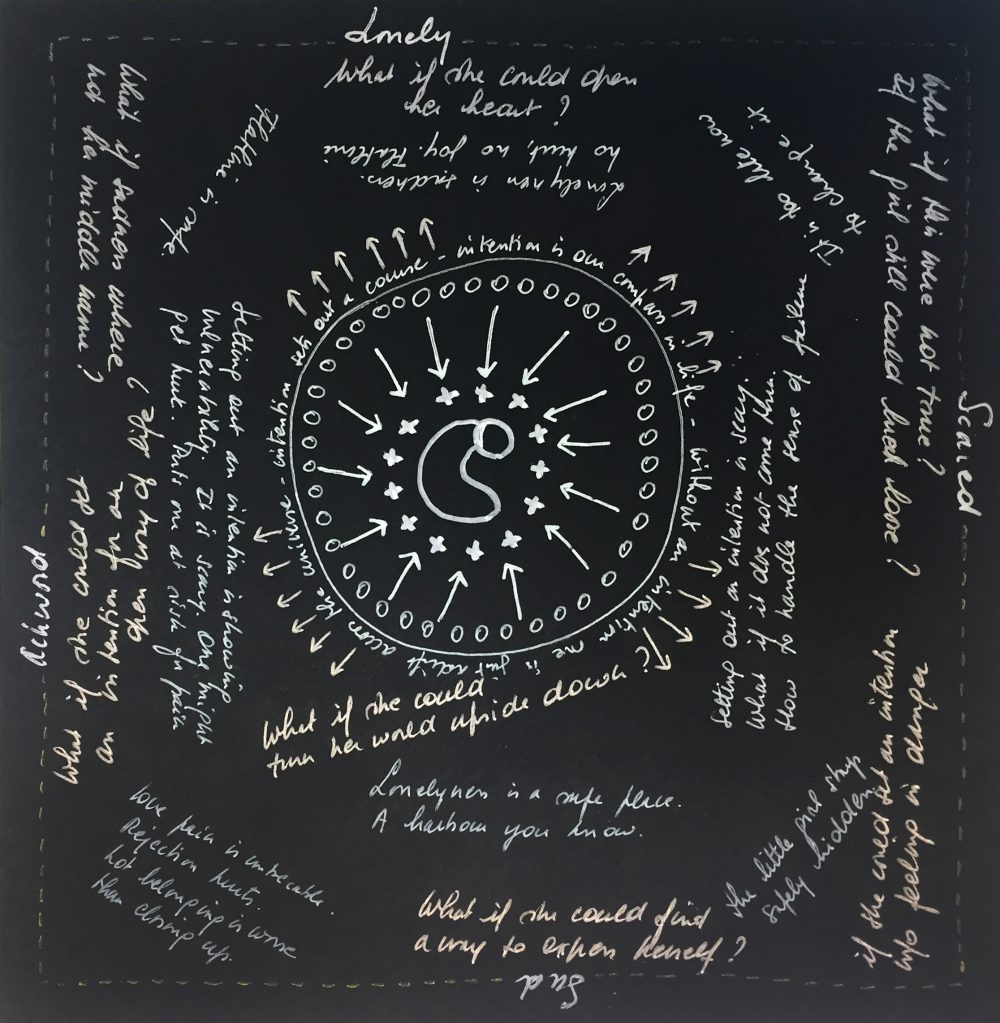 Lonely
What if she could open
her heart?
Lonelyness is sadness.
no hurt, no joy. Flatline
Flatline is safe.
It is too late now
to change it
What if sadness where
not her middle name?
What if this were not true?
If the girl still could heed love?
Scared
sets out a course - intention is our compass in life - without an intention one is just adrift across the universe -
Setting out an intention is showing
vulnerability. It is scary. One might
get hurt. Puts one at risk for pain
Setting out an intention is scary.
What if it does not come thru.
How to handle the sense of failure
Akward
What if she could set
an intention for an
open way to life?
What if she could
turn her world upside down?
Lonelyness is a safe place.
A harbour you know.
if she could set an intention
w/o feeling in danger
the little girl stays
safely hidden
love pain is
Rejection hurts,
not belonging is worse
than closing up.
What if she could find
a way to express herself?
Sad